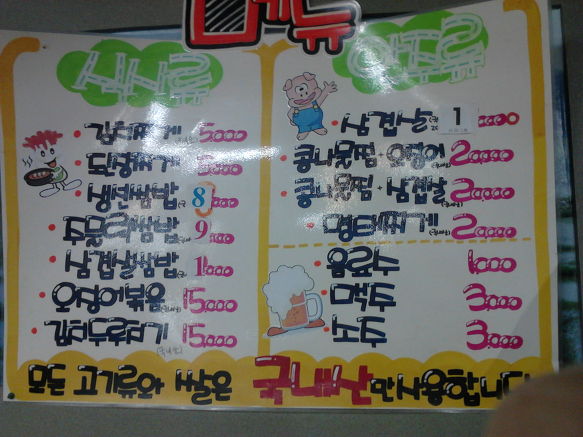 메뉴
식사류
김치찌개 5000
된장찌개 5000
생선쌈밥 8000
주물럭쌈밥 9000
삼겹살쌈밥
오징어볶음 15000
김치두루치기 15000
(국내산)
안주류
삼겹살
콩나물찜+오징어 20000
콩나물찜+삼겹살 20000
명태찌개 20000
음료수 1000
맥주 3000
소주 3000
모든 고기류와 쌀은 국내산만 사용합니다